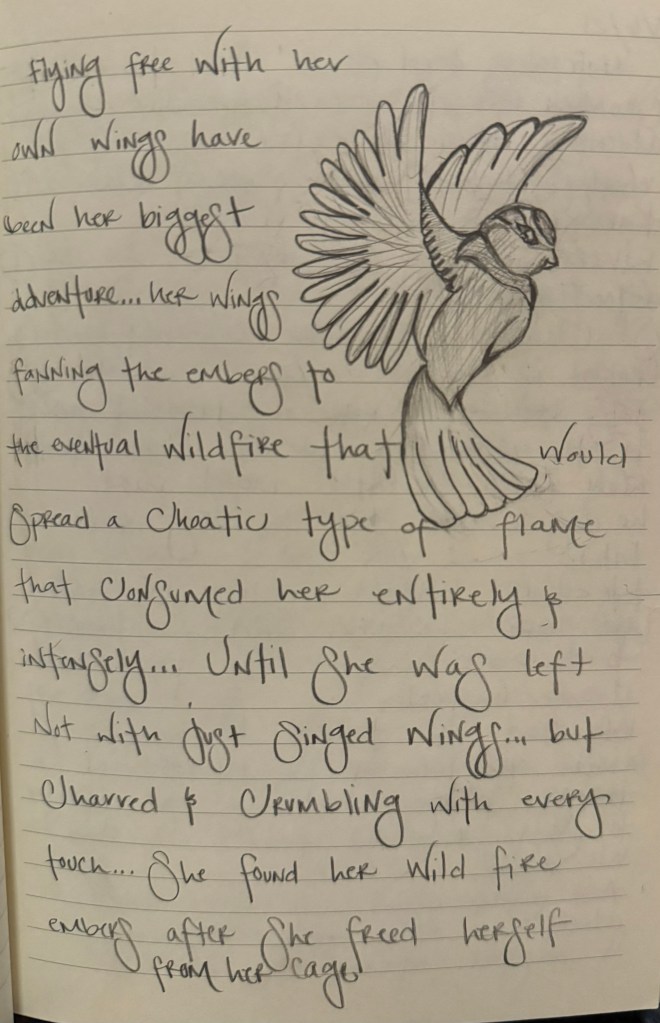 flying free with her
own wings have
been her biggest
adventure... her wings
fanning the embers to
the eventual wildfire that would
spread a choatic type of flame
that consumed her entirely &
intensely... Until she was left
Not with just singed wings... but
Charred & Crumbling with every
touch... She found her wild fire
embers after she freed herself
from her cage